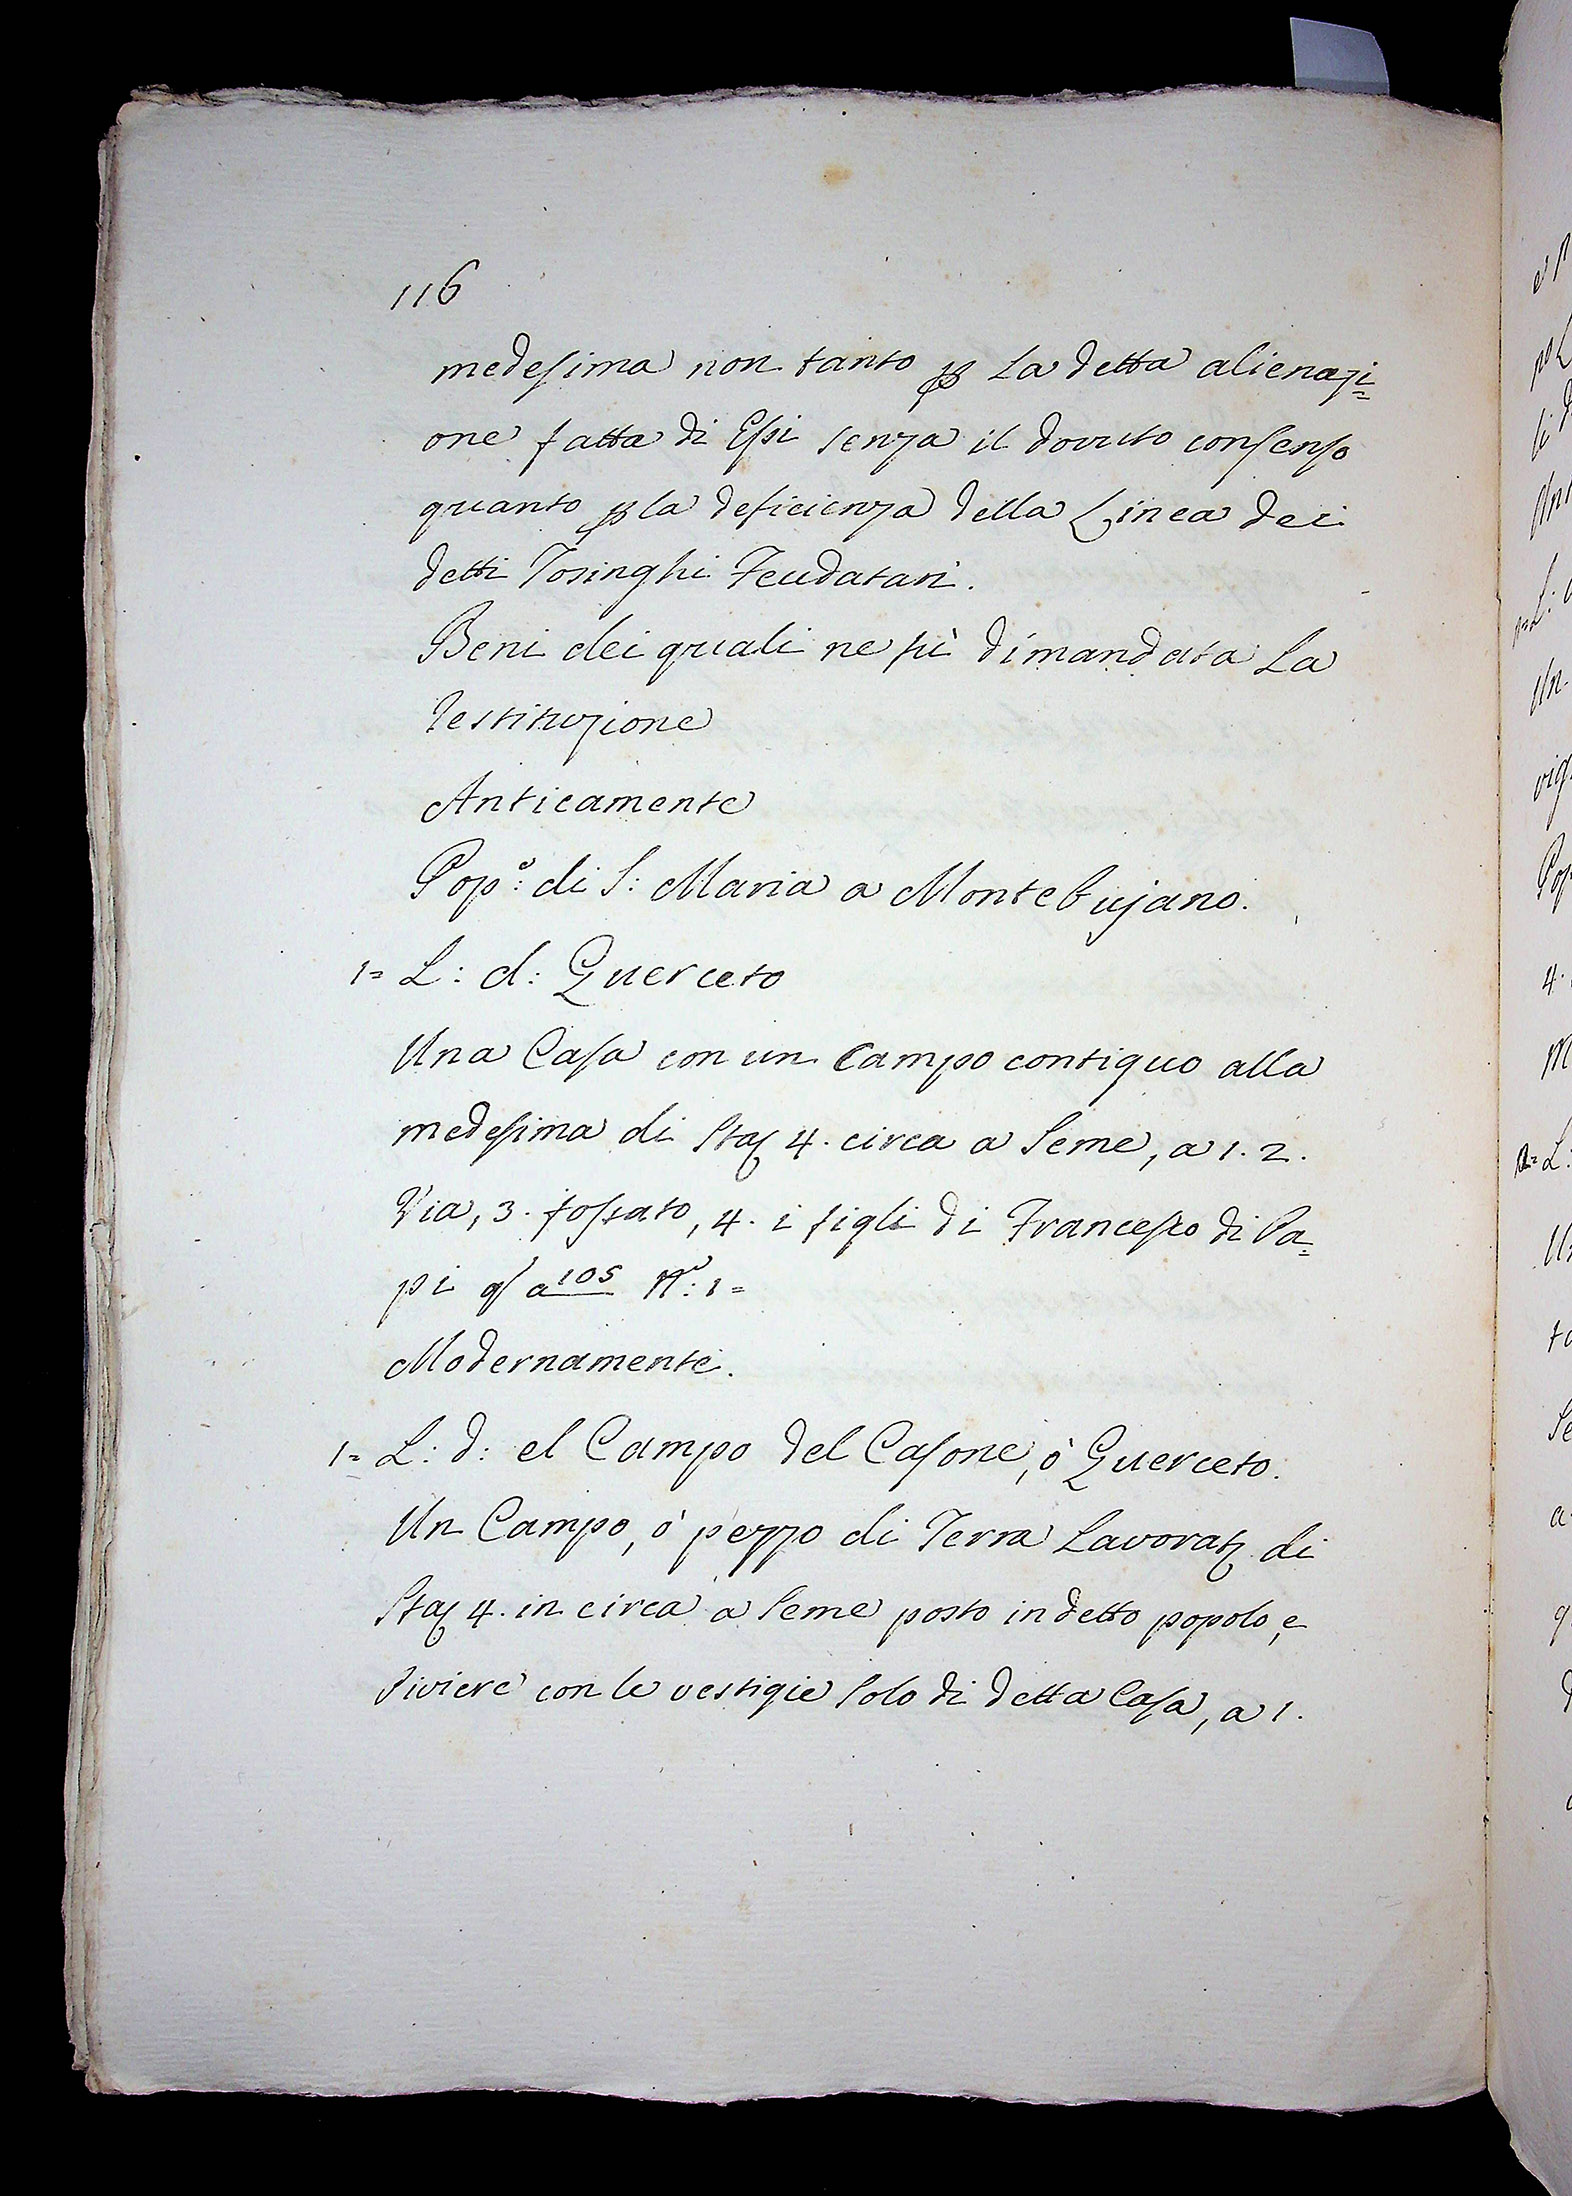 116
medesima non tanto p la detta alienazi=
one fatta di Essi senza il dovuto consenso
quanto p la deficienza della Linea dei
detti Tosinghi Feudatari.
Beni dei quali ne fù dimandata la
restituzione
Anticamente
Pop.º: di S: Maria a Montebujano.
1= L: d: Querceto
Una Casa con un Campo contiguo alla
medesima di Staj 4. circa a Seme, a 1. 2.
Via, 3. fossato, 4. i figli di Francesco di Pa=
pi qs a 105 Nº: 1=
Modernamente.
1= L: d: el Campo del Casone, ò Querceto.
Un Campo, ò pezzo di Terra Lavorat. di
Staj 4. in circa a Seme posto in detto popolo, e
Piviere con le vestigie solo di detta Casa, a 1.